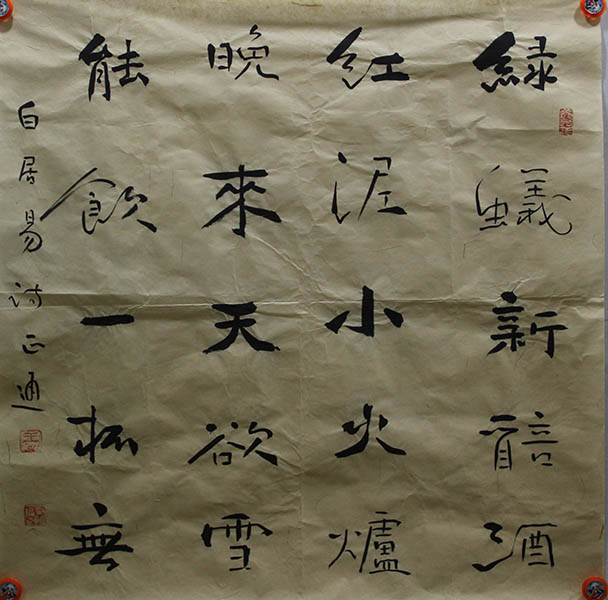 緑蟻新醅酒
紅泥小火爐
晚來天欲雪
能飲一杯無
白居易詩正通